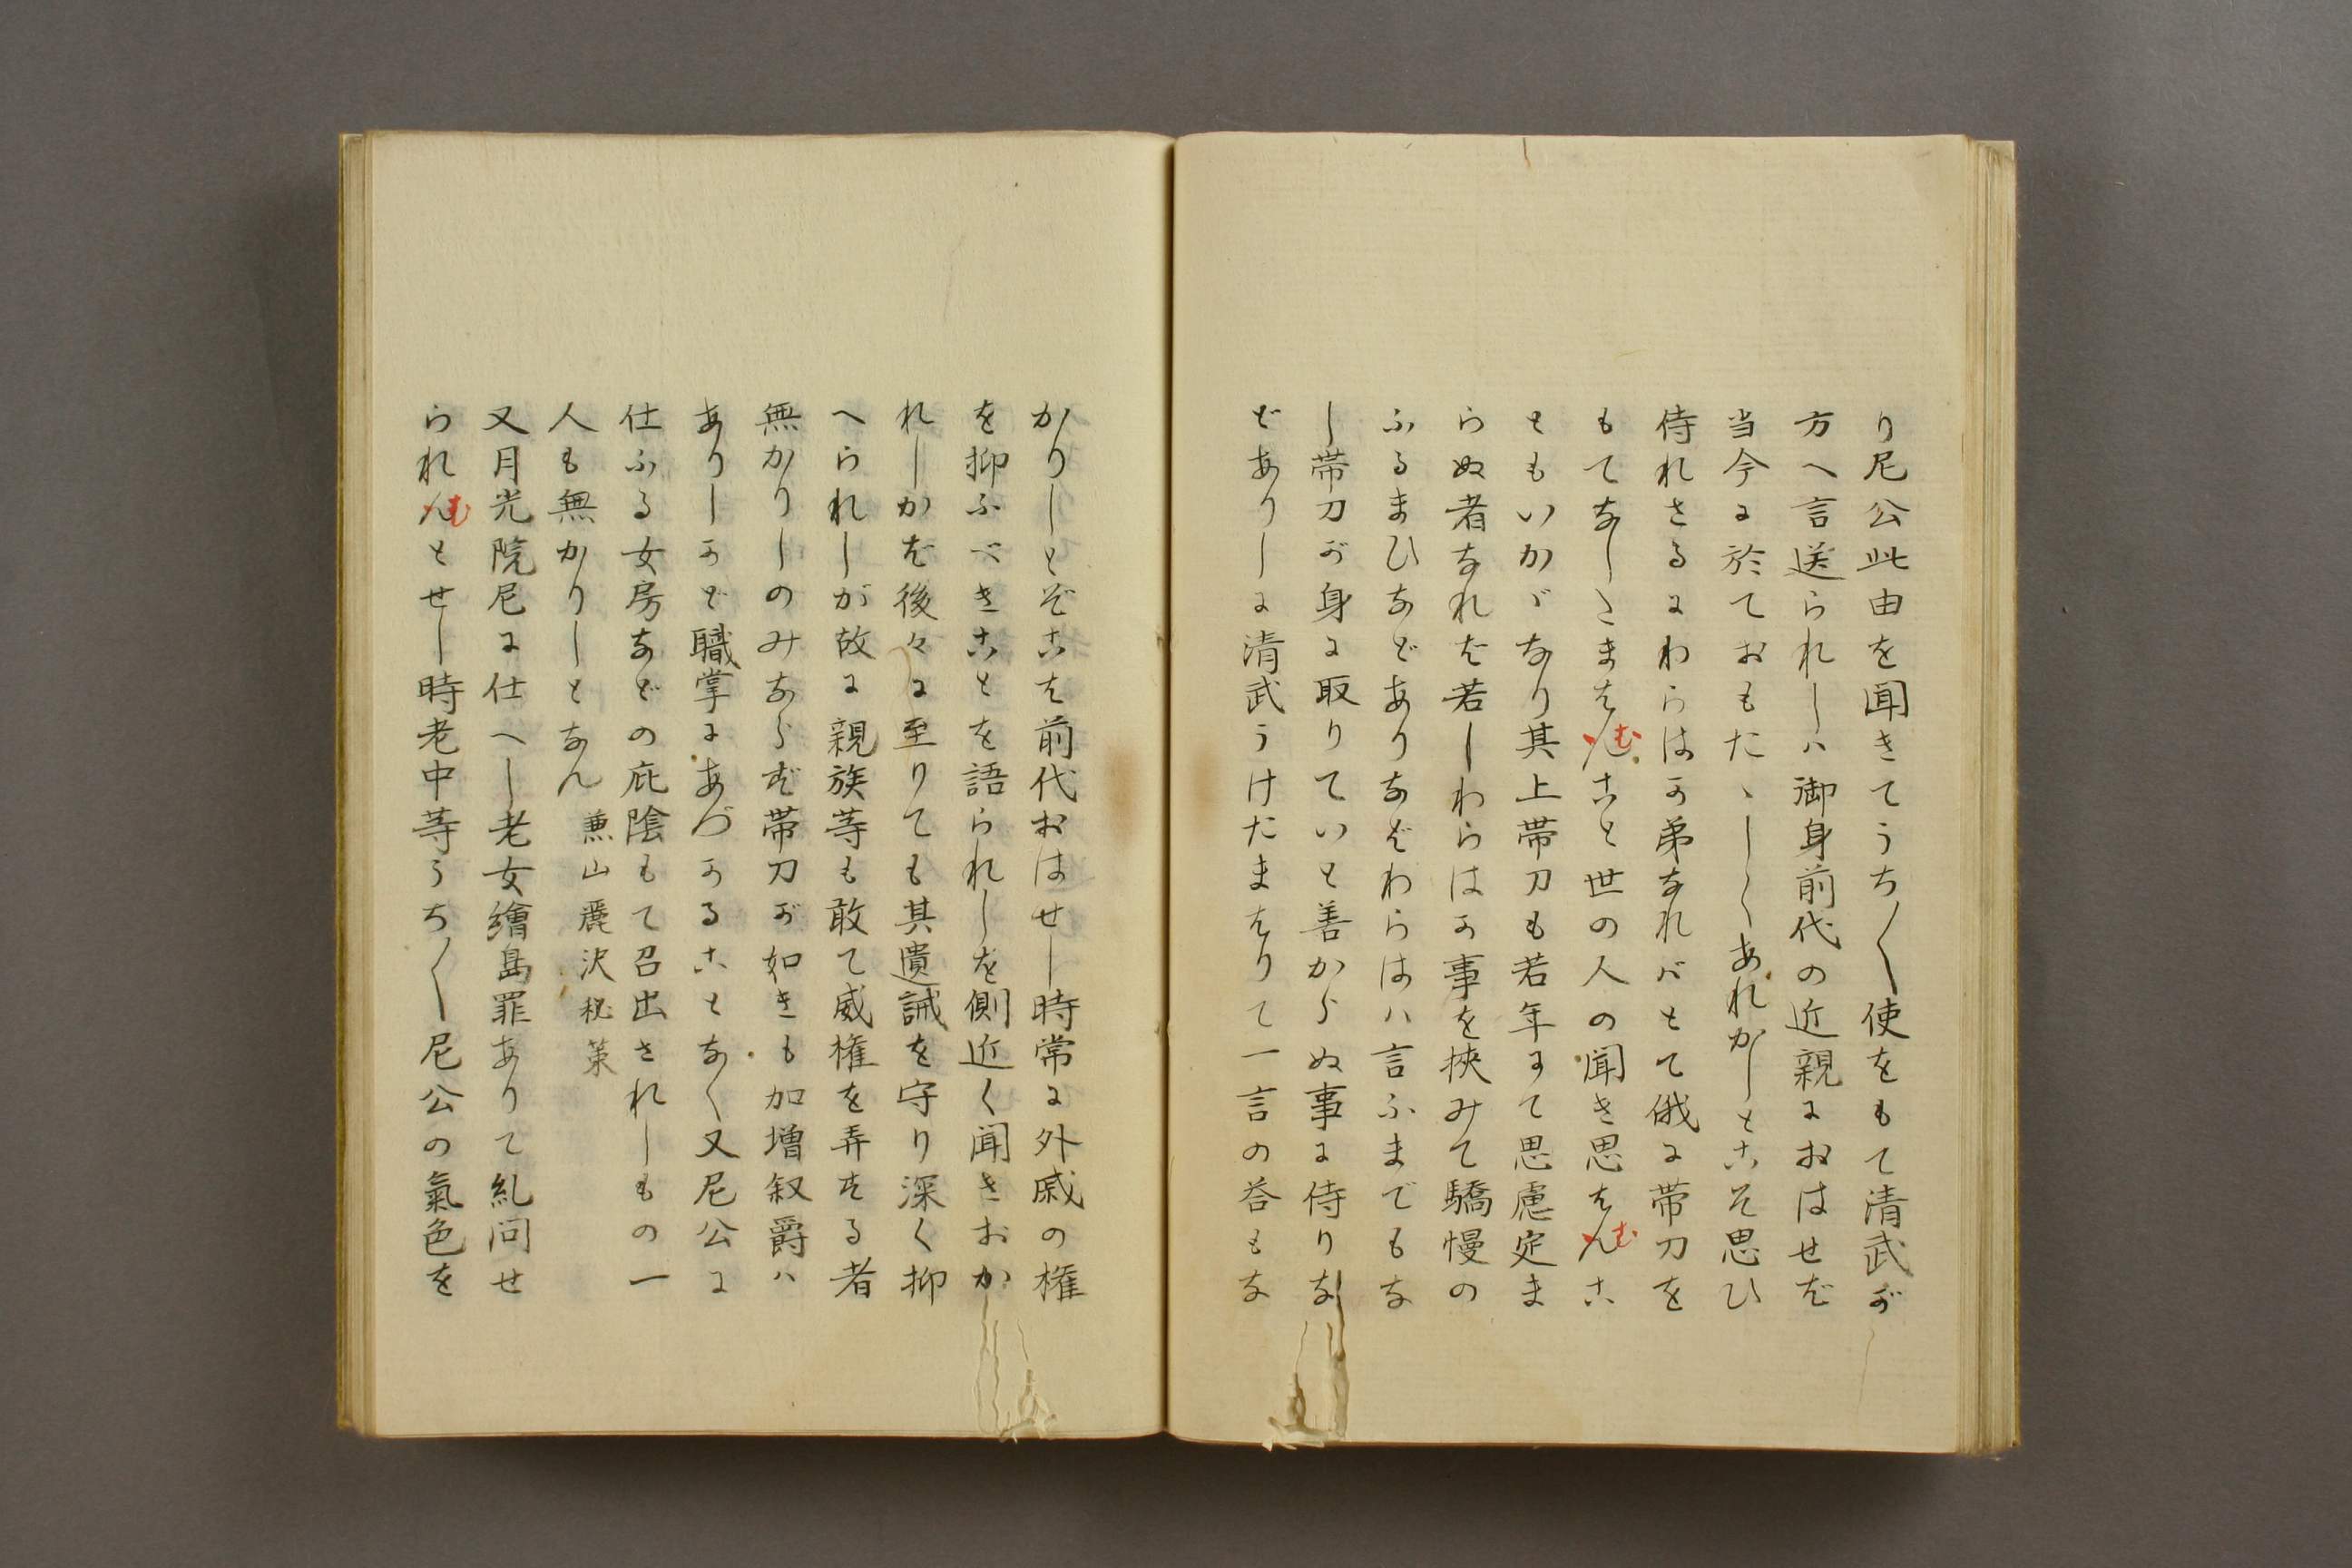 り尼公此由を聞きてうち〳〵使をもて清武が
方へ言送られしハ御身前代の近親におはせば
当今に於ておもたゝしくあれかしとこそ思ひ
侍れさるにわらはが弟なれバとて俄に帯刀を
もてなしたまはんむこと世の人の聞き思はんむこ
ともいかゞなり其上帯刀も若年にて思慮定ま
らぬ者なれば若しわらはが事を挾みて驕慢の
ふるまひなどありなばわらはハ言ふまでもな
し帯刀が身に取りていと善からぬ事に侍りな
どありしに清武うけたまはりて一言の答もな
かりしとぞこは前代おはせし時常に外戚の権
を抑ふべきことを語られしを側近く聞きおか
れしかば後々に至りても其遺誡を守り深く抑
へられしが故に親族等も敢て威権を弄する者
無かりしのみならず帯刀が如きも加増叙爵ハ
ありしかど職掌にあづかることなく又尼公に
仕ふる女房などの庇陰もて召出されしもの一
人も無かりしとなん 兼山麗沢秘策
又月光院尼に仕へし老女繪島罪ありて糺問せ
られんむとせし時老中等うち〳〵尼公の氣色を